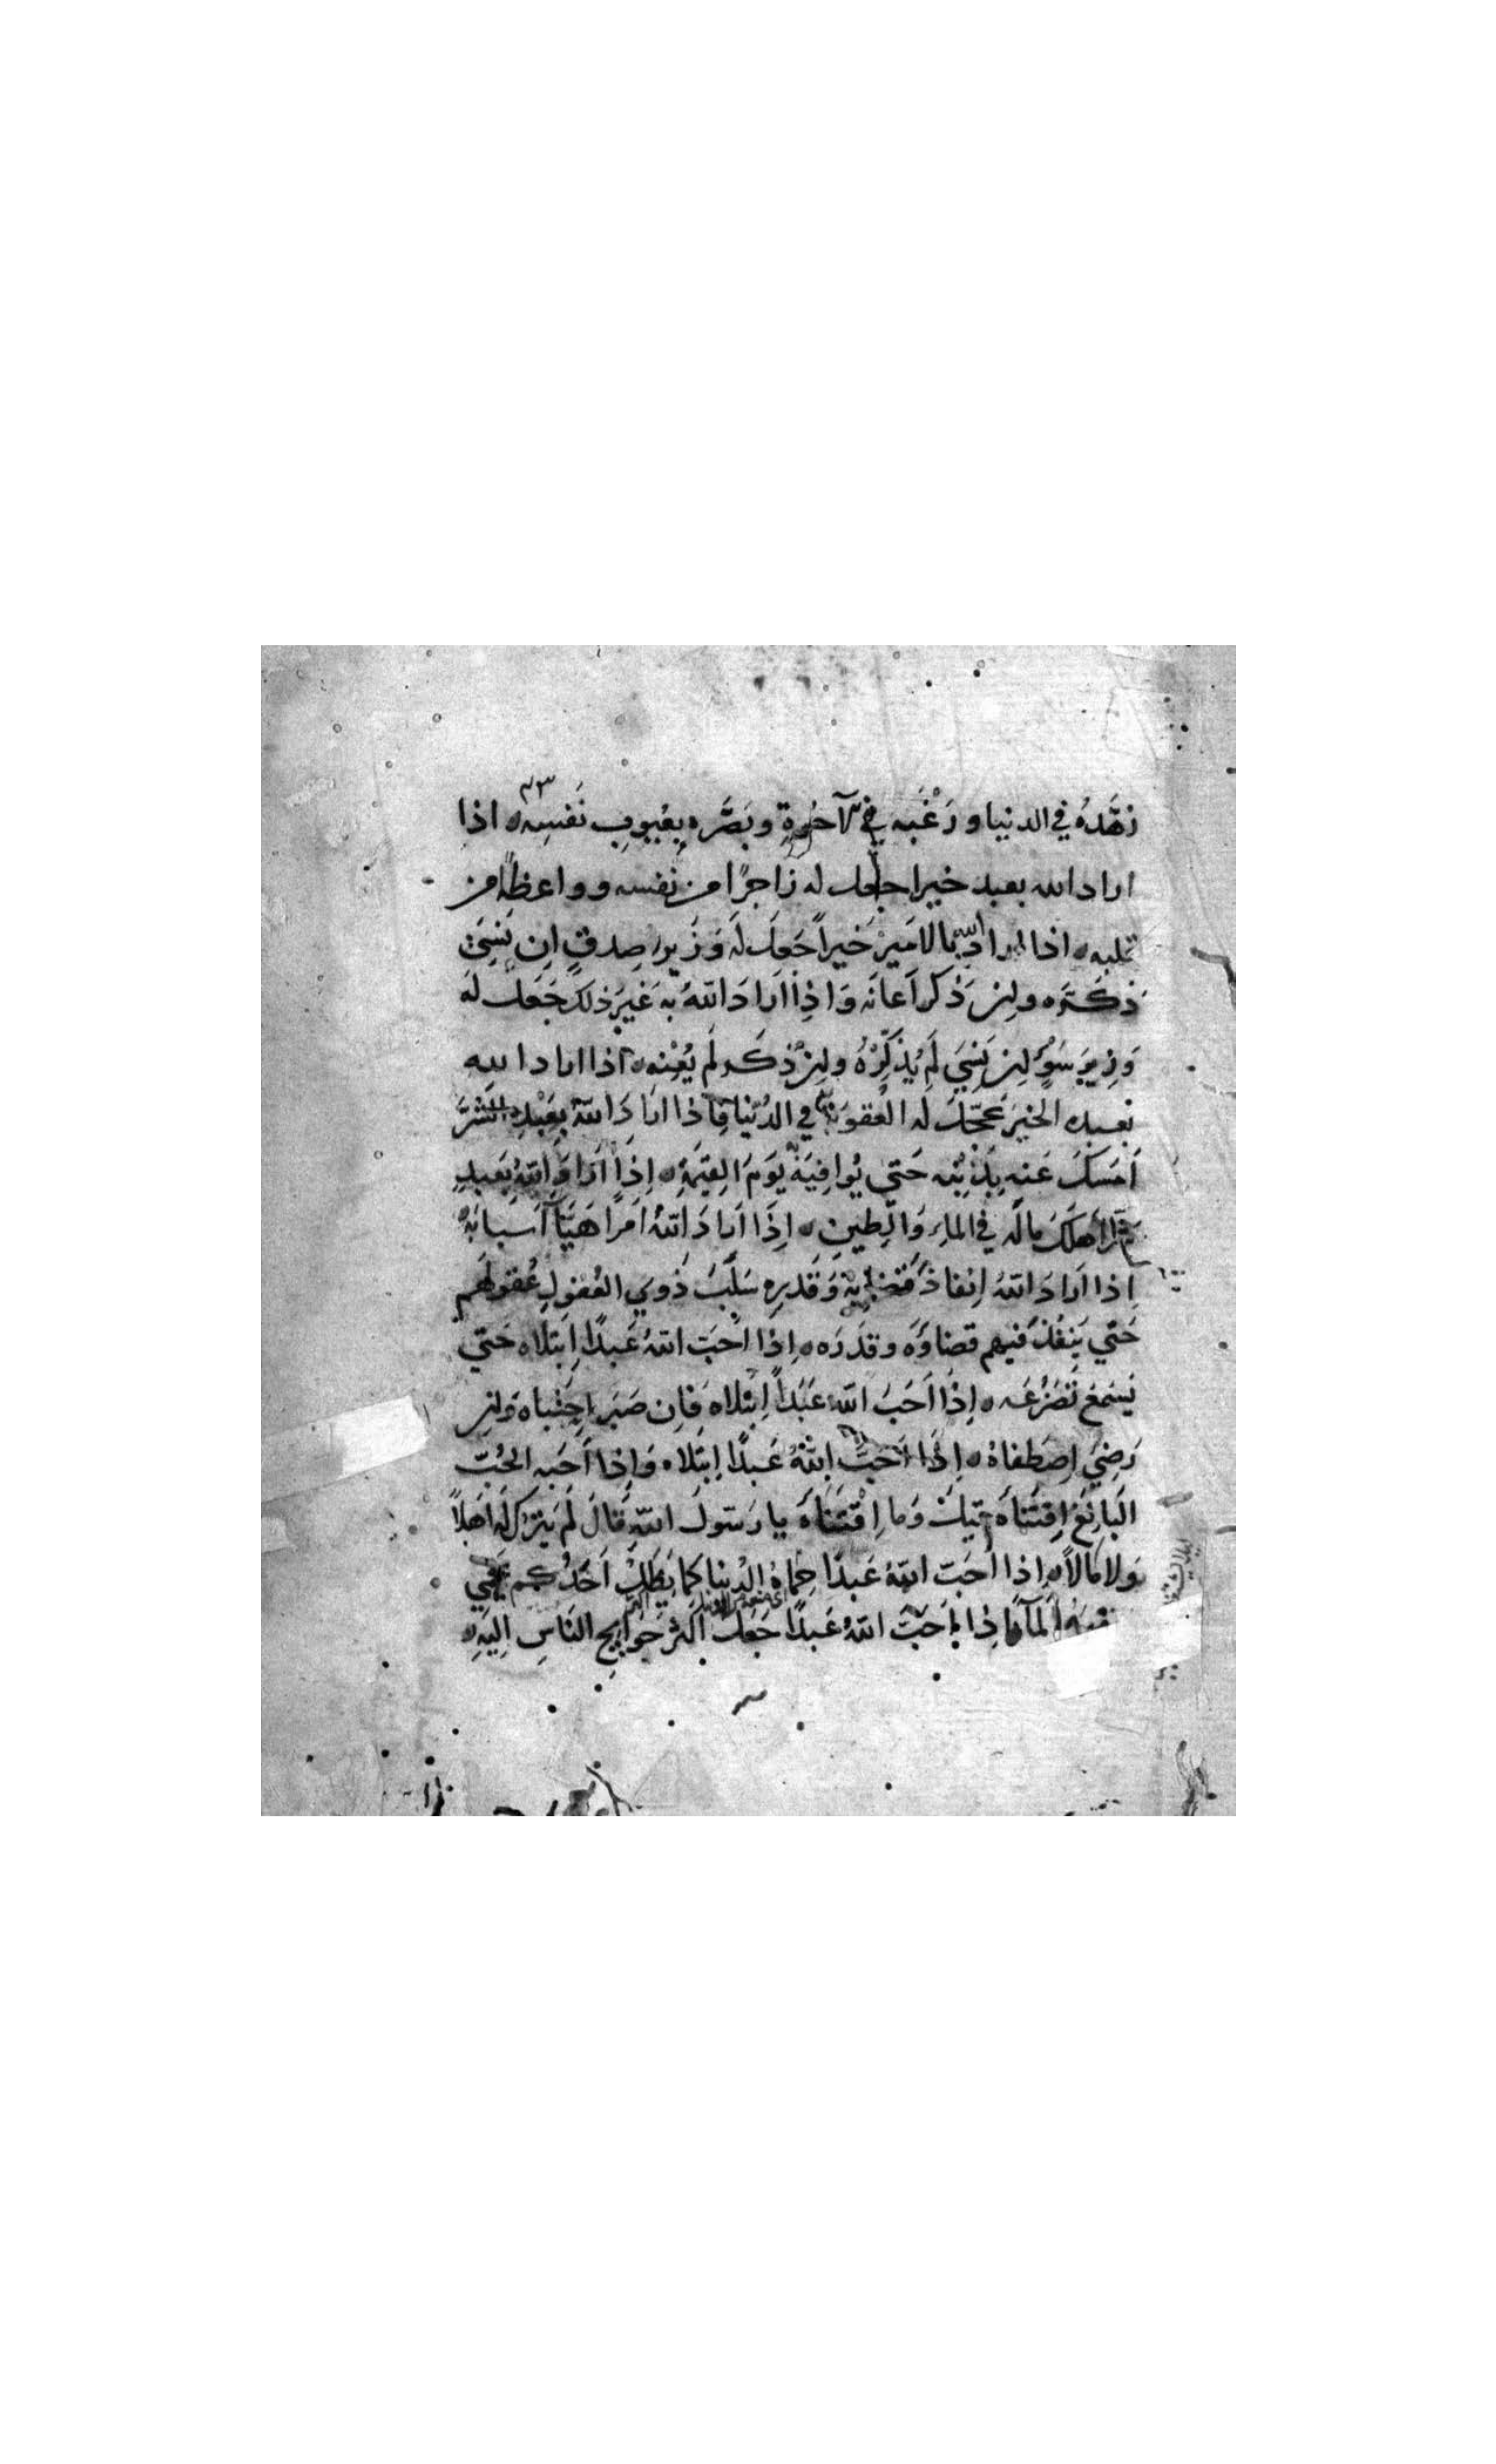 زهَّدَهُ في الدنيا و رَغَّبَه في الآخرةِ وبَصَّره بِعُيُوبِ نَفسِه اذا
اراد الله بعبد خيرا جعل له زاجرًا من نفسه و واعظًا من
قلبه اذا اراد الله بالامَيرِ خَيراً جَعَلَ لَه وَزيرا صِدقٍ اِن نَسِيَ
ذَكَّرَه وان ذَكَرَ اَعانَه وَاذِا اَرادَ اللهُ بِه غَيرَ ذلك جَعَل لَه
وَزيرَ سَوءٍ ان نَسِيَ لَم يُذَكِّرْهُ وان ذكَر لَم يُعِنْه اذا اراد الله
بعبده الخيرَ عَجَّلَ لَه العُقوبَةَ في الدُنْيا فَاِذا ارَادَ اللهُ بِعَبْدِه الشَرَّ
اَمسَكَ عَنه بِذَنْبِه حَتي يُوافِيَهُ يَومَ القِيمَةِ اِذَا اَرادَ اللهُ بِعَبدٍ
شَرّا اَهلَكَ مالَه في الماءِ وَالطينِ اِذَا اَرادَ اللهُ اَمرًا هَيَّأَ اَسبابَهُ
اِذا اَرادَ اللهُ اِنفاذَ قَضائِهِ وَقَدَرِهِ سَلَبَ ذَوي العُقولِ عُقولَهم
حَتّي يَنفُذَ فيهم قضاؤَه وقَدَرَه اِذا اَحَبَ اللهُ عَبدًا اِبتَلاه حَتي
يَسمَعَ تَضَرُّعَه اِذَا اَحَبَ اللهُ عَبدًا اِبتَلاه فَاِن صَبَر اِجتَباه وَان
رَضِيَ اِصطَفاهُ اِذَا اَحَبَّ اللهُ عَبدًا اِبتَلاه وَاِذا اَحَبه الحُبّ
البَالغَ اِقتَناه قيلَ وَما اِقتَناهَ يا رَسولَ اللهِ قَالَ لَم يَترُك لَه اَهلاً
وَلا مَالاً اِذا اَحَبَ اللهُ عَبدًا حِماهُ الدُنيا كَما يَظَلُّ اَحَدُكم يَحمي
الماء اِذا اَحَبَّ اللهُ عَبدًا جَعَلَ اَكثرَ حَوايجِ النَاسِ اِلَيهِ